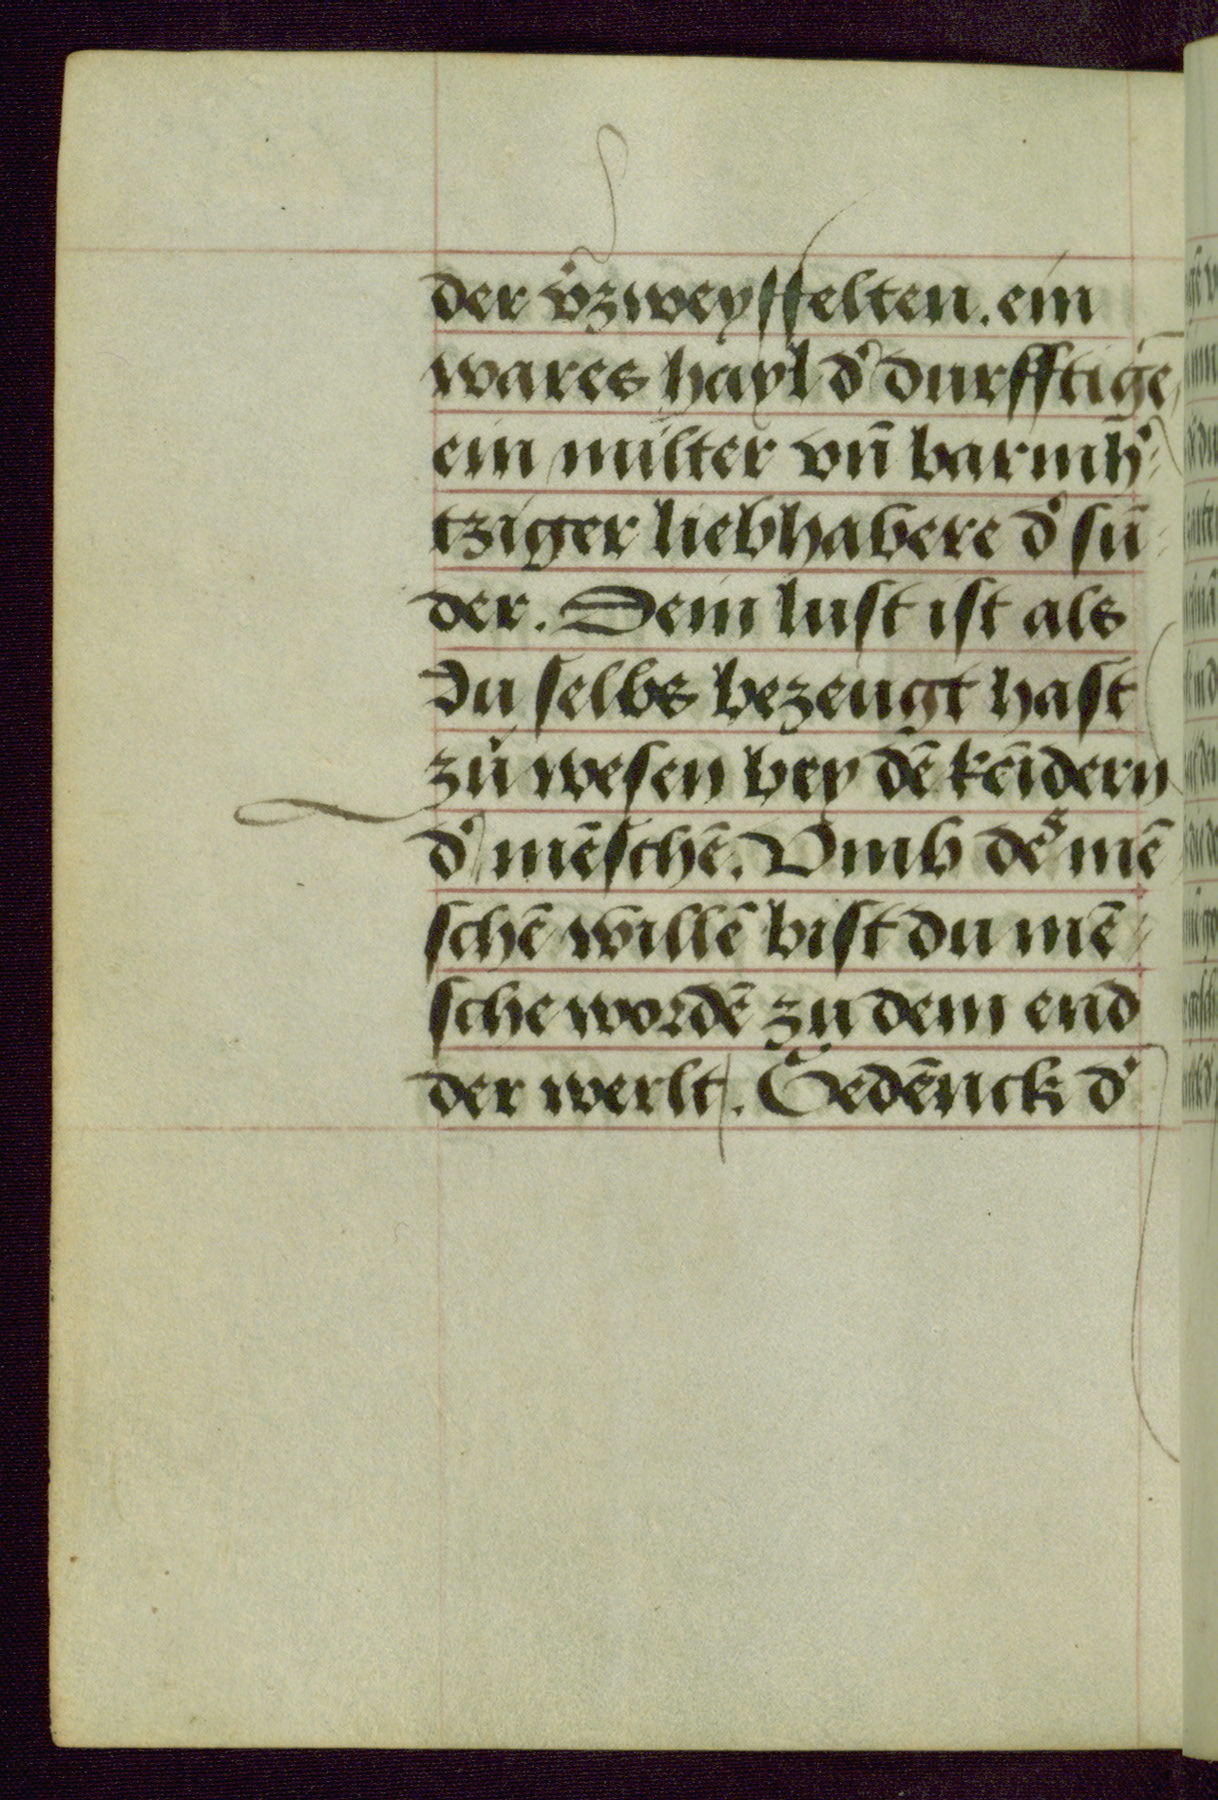 der v̉zweyffelten. ein
wares hayl d̉ durfftigē
ein milter vn̄ barmh̉
tziger liebhabere d̉ sū
der. Dein lust ist als
du selbs bezeugt hast
zů wesen bey dē kēidern
d̉ mēschē. Vmb deˢ mē
schē willē bist du mē
sche wordē zu dem end
der werlt. Gedēnck d̉